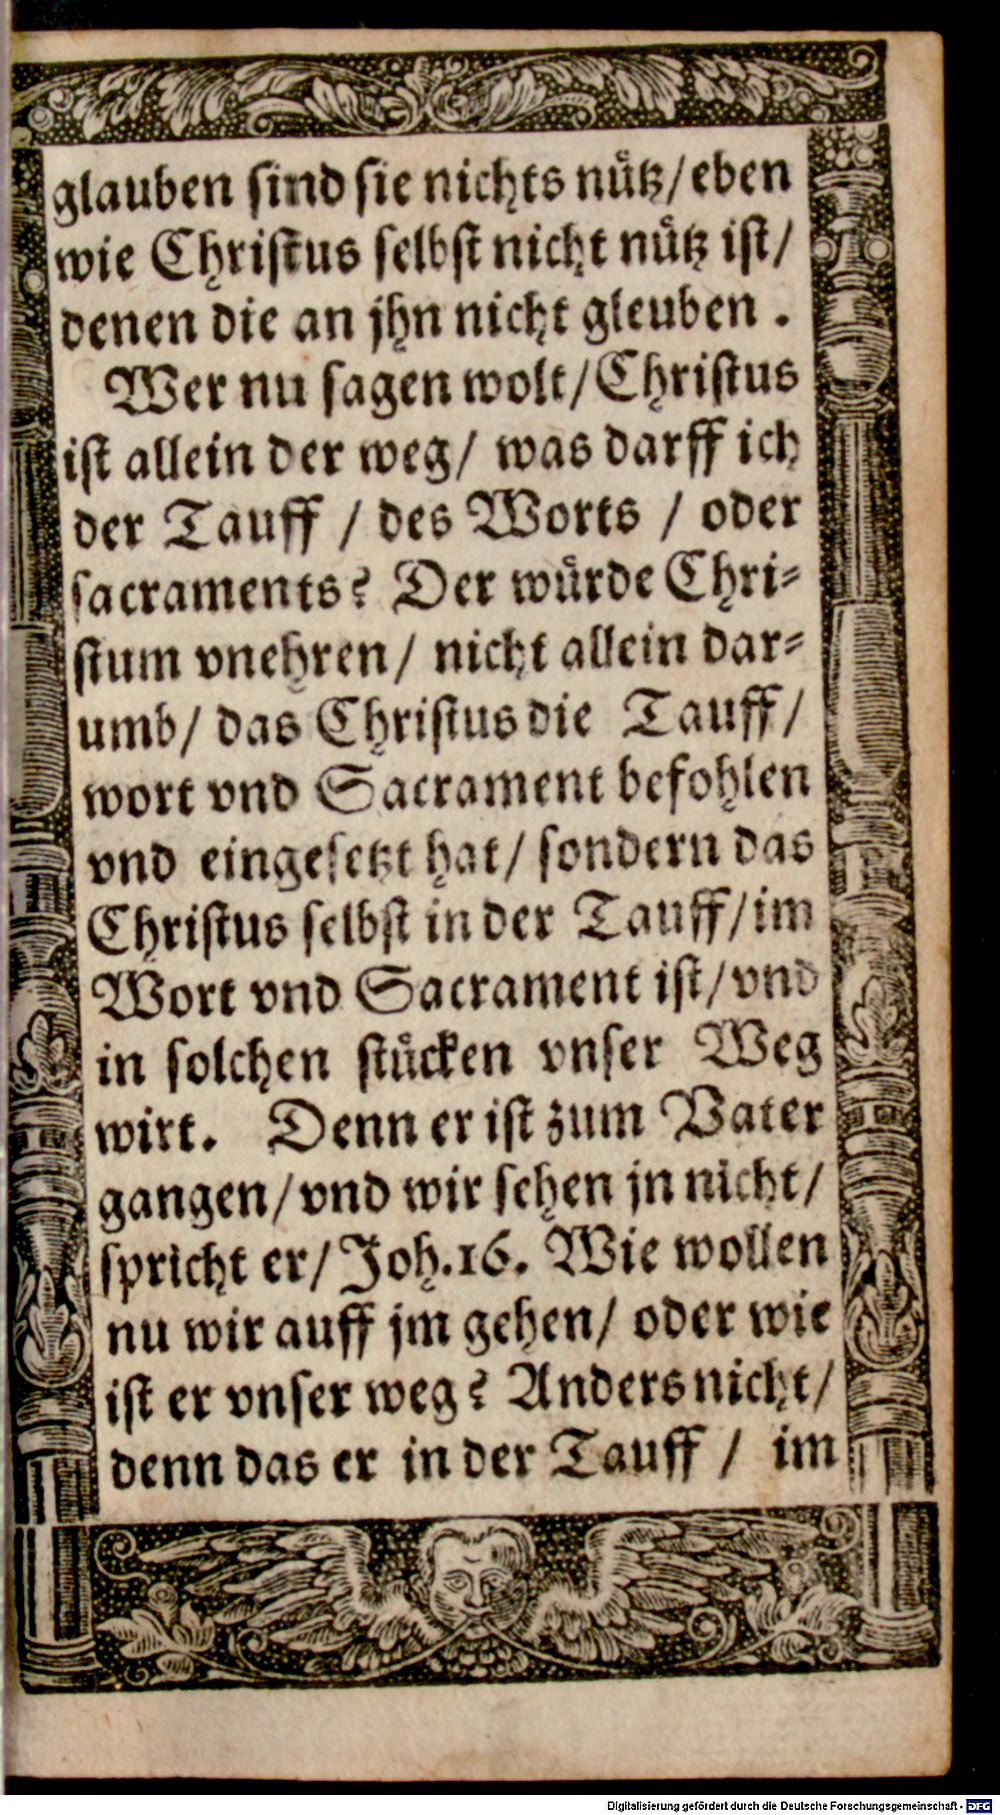 glauben ſind ſie nichts nuͤtz/eben
wie Chriſtus ſelbſt nicht nuͤtz iſt/
denen die an jhn nicht gleuben .
Wer nu ſagen wolt/Chriſtus
iſt allein der weg/ was darff ich
der Tauff / des Worts / oder
ſacraments? Der wuͤrde Chri⸗
ſtum vnehren/ nicht allein dar⸗
umb/ das Chriſtus die Tauff/
wort vnd Sacrament befohlen
vnd eingeſetzt hat/ ſondern das
Chriſtus ſelbſt in der Tauff/im
Wort vnd Sacrament iſt/vnd
in ſolchen ſtuͤcken vnſer Weg
wirt. Denn er iſt zum Vater
gangen/vnd wir ſehen jn nicht/
ſpricht er/Joh.16. Wie wollen
nu wir auff jm gehen/ oder wie
iſt er vnſer weg? Anders nicht/
denn das er in der Tauff / im
Digitalisierung gefördert durch die Deutsche Forschungsgemeinschaft - DFG